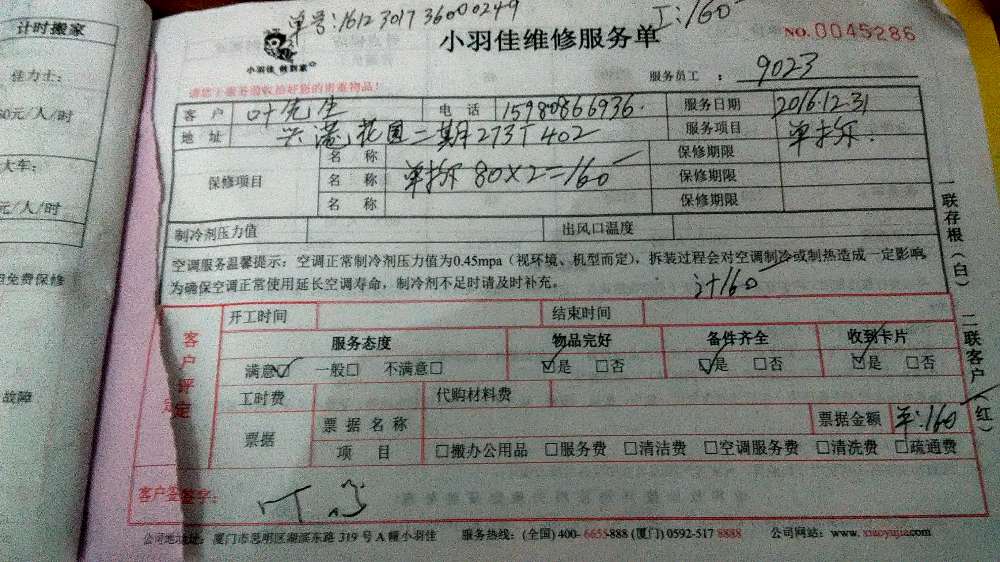 单号:1612301736000249
工:160
小羽佳维修服务单
NO.0045286
小羽佳 帮到家
服务员工 : 9023
客户 叶先生 电话 15980866936. 服务日期 2016.12.31
地址 花园二期273丅402 服务项目 单拆.
保修项目 名称 保修期限
名称 单拆 80×2=160 保修期限
名称 保修期限
制冷剂压力值 出风口温度
空调服务温馨提示:空调正常制冷剂压力值为0.45mpa(视环境、机型而定),拆装过程会对空调制冷或制热造成一定影响,
为确保空调正常使用延长空调寿命,制冷剂不足时请及时补充。
计160
客户评定
开工时间 结束时间
服务态度 物品完好 备件齐全 收到卡片
满意☑ 一般□ 不满意□ ☑是 □否 ☑是 □否 ☑是 □否
工时费 代购材料费
票据 票据名称 票据金额 单:160
项目 □搬办公用品 □服务费 □清洁费 □空调服务费 □清洗费 □疏通费
客户签字:
公司地址:厦门市思明区湖滨东路 319 号 A 幢小羽佳 服务热线:(全国) 400-6655-888 (厦门) 0592-517 8888 公司网站:www.xiaoyujia.com
一联存根(白) 二联客户(红)
计时搬家
佳力士:
30元/人/时
大车:
元/人/时
免费保修
故障